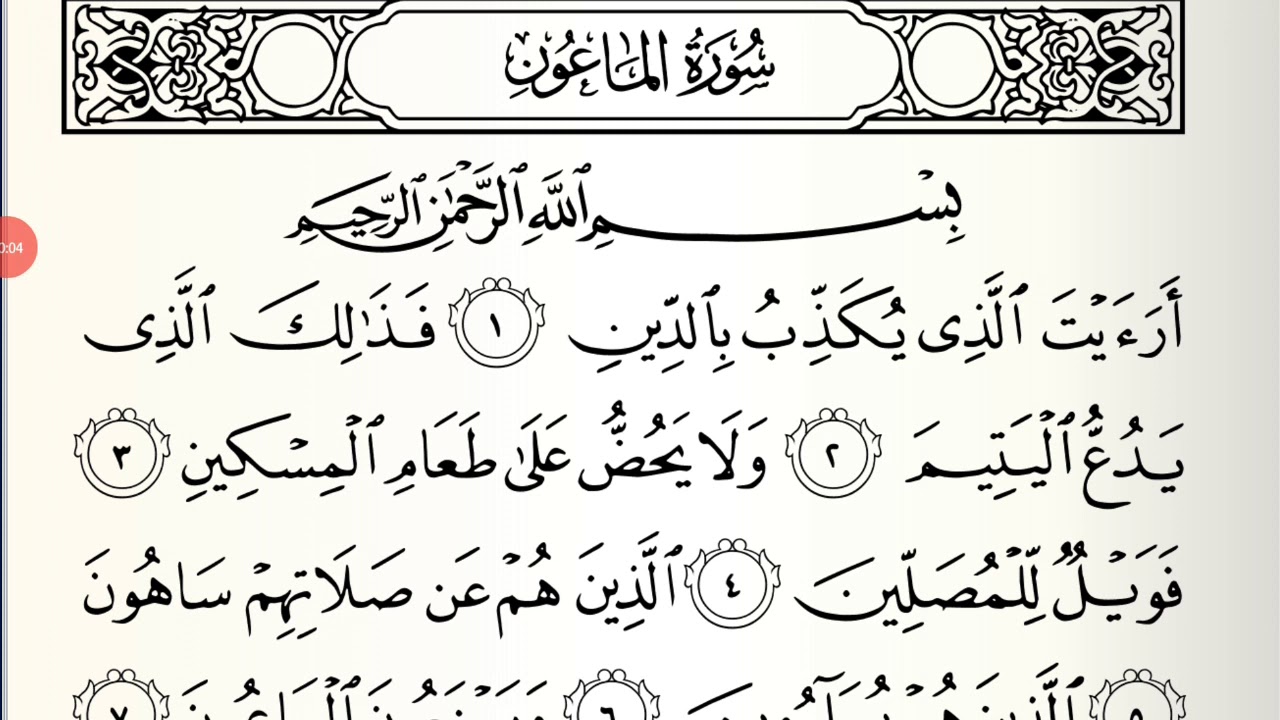 سُورَةُ المَاعُونِ
بِسْمِ ٱللَّهِ ٱلرَّحْمَٰنِ ٱلرَّحِيمِ
أَرَءَيْتَ ٱلَّذِى يُكَذِّبُ بِٱلدِّينِ ١ فَذَٰلِكَ ٱلَّذِى
0:04
يَدُعُّ ٱلْيَتِيمَ ٢ وَلَا يَحُضُّ عَلَىٰ طَعَامِ ٱلْمِسْكِينِ ٣
فَوَيْلٌ لِّلْمُصَلِّينَ ٤ ٱلَّذِينَ هُمْ عَن صَلَاتِهِمْ سَاهُونَ
٥ ٱلَّذِينَ هُمْ يُرَآءُونَ ٦ وَيَمْنَعُونَ ٱلْمَاعُونَ ٧